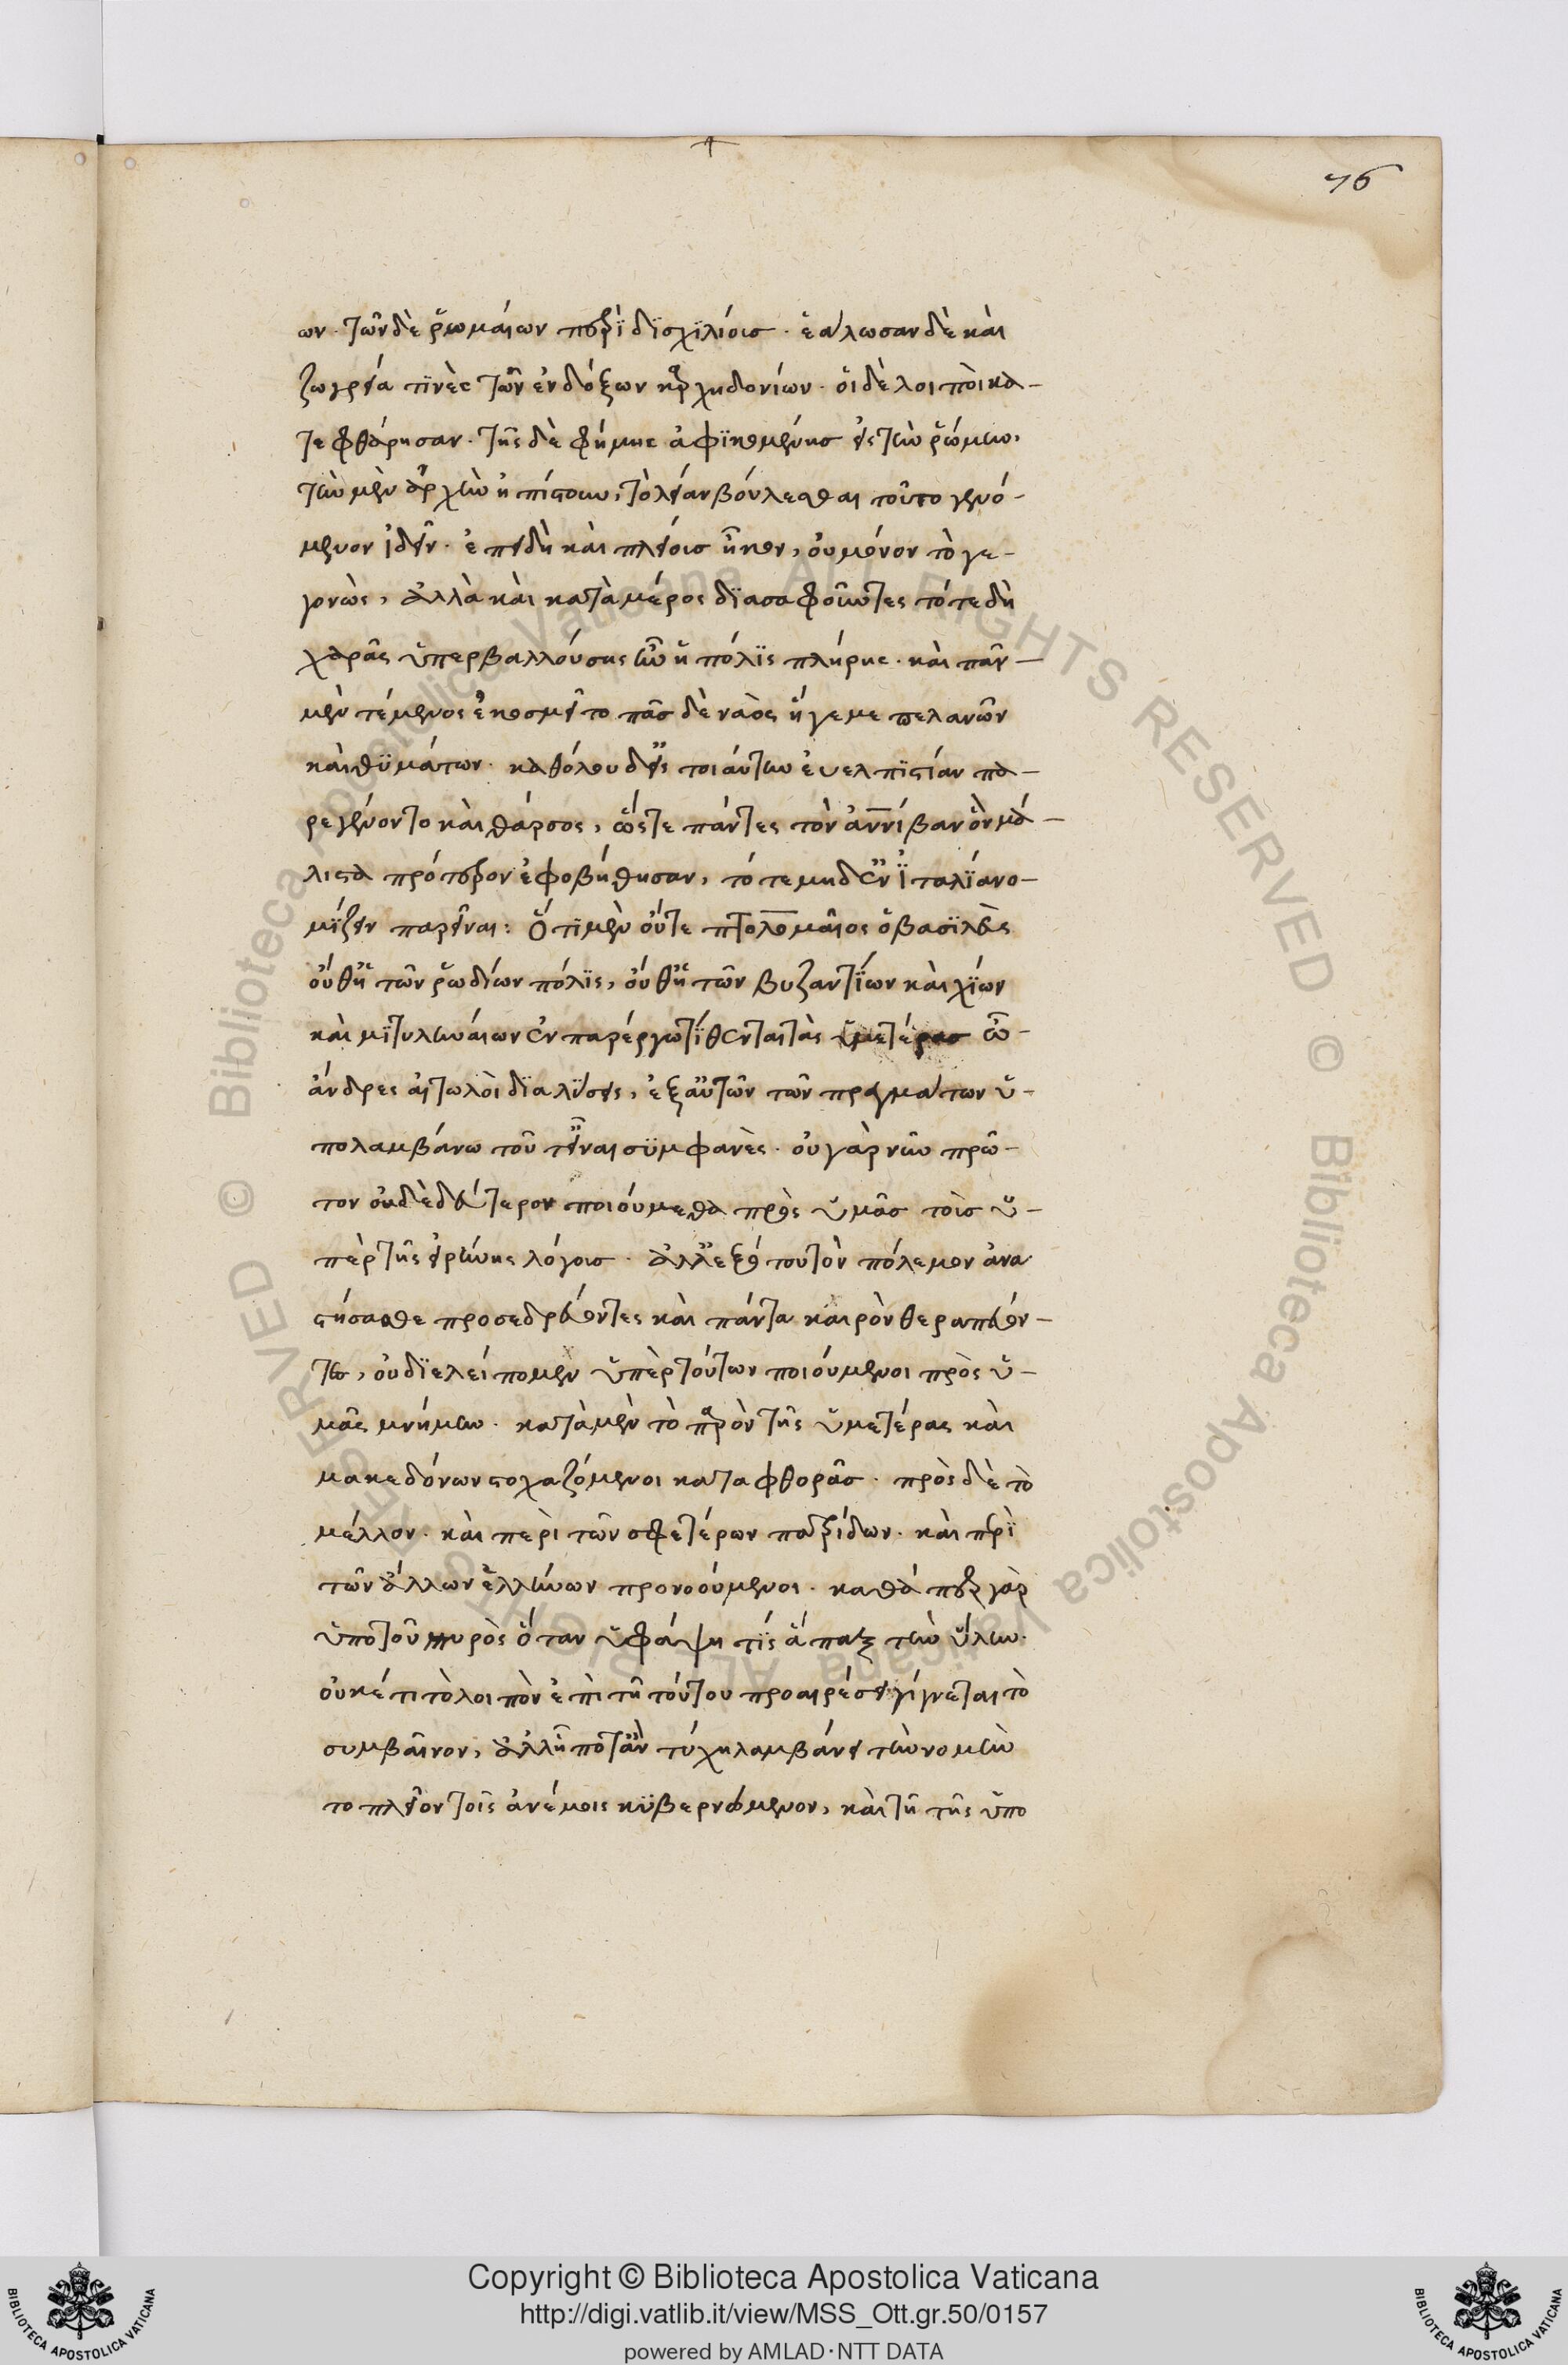 76
ων. τῶν δὲ ῥωμαίων περὶ δϊσχϊλίοισ. ἑάλωσαν δὲ καὶ
ζωγρεία τϊνὲς τῶν ἐνδόξων καρχηδονίων. ὁι δὲ λοιποὶ κα–
τεφθάρησαν. τῆς δὲ φήμης ἀφϊκομένησ εἰς τὴν ῥώμην,
τὴν μὲν ἀρχὴν ἠπίστουν, τὸ λείαν βούλεσθαι τοῦτο γενό–
μενον ἰδεῖν. ἐπειδὴ καὶ πλείοισ ἧκον, ὀυ μόνον τὸ γε–
γονὼς, ἀλλὰ καὶ κατὰ μέρος δϊασαφοῦντες τότε δὴ
χαρᾶς ὑπερβαλλούσης ἦν ἡ πόλϊς πλήρης. καὶ πᾶν –
μὲν τέμενος ἐκοσμεῖτο πᾶσ δὲ ναὸς ἤγεμε πελανῶν
καὶ θϋμάτων. καθόλου δ' εἰς τοιάυτην ἐυελπϊστίαν πα–
ρεγένοντο καὶ θάρσος, ὥστε πάντες τὸν ἀννίβαν ὃν μά–
λιστα πρότερον ἐφοβήθησαν, τότε μηδ' ἐν ἰταλία νο–
μϊζειν παρεῖναι: ὅτι μὲν ὄυτε πτολομαῖος ὁ βασϊλεὺς
ὄυθ' ἡ τῶν ῥωδίων πόλϊς, ὄυθ' ἡ τῶν βυζαντΐων καὶ χΐων
καὶ μϊτυληνάιων ἐν παρέργω τΐθενται τὰς ὑμετέρασ ὦ –
ἄνδρες ἀιτωλοὶ δϊαλΰσεις, ἐξ ἀυτῶν τῶν πραγμάτων ὑ–
πολαμβάνω τοῦτ' εἶναι σϋμφανὲς. ὀυ γὰρ νῦν πρῶ–
τον ὀυδὲ δεύτερον ποιούμεθα πρὸς ὑμᾶσ τοὶσ ὑ–
πὲρ τῆς εἰρήνης λόγοισ. ἀλλ' ἐξ ὅτου τὸν πόλεμον ἀνα
στήσασθε προσεδρεύοντες καὶ πάντα καιρὸν θεραπεύον–
τες, ὀυ δϊελείπομεν ὑπὲρ τούτων ποιόυμενοι πρὸς ὑ–
μᾶς μνήμην. κατὰ μὲν τὸ παρὸν τῆς ὑμετέρας καὶ
μακεδόνων στοχαζόμενοι καταφθορᾶσ. πρὸς δὲ τὸ
μέλλον. καὶ περὶ τῶν σφετέρων πατρίδων. καὶ περὶ
τῶν ἄλλων ἑλλήνων προνοόυμενοι. καθά περ γὰρ
ὑπὸ τοῦ πυρὸς ὅταν ὑφάψη τίς ἅπαξ τὴν ὕλην.
ὀυκέτι τὸ λοιπὸν ἐπὶ τῆ τόυτου προαιρέσει γίγνεται τὸ
συμβαῖνον, ἀλλ' ἧ ποτ' ἂν τύχη λαμβάνει τὴν νομὴν
το πλεῖον τοῖς ἀνέμοις κϋβερνώμενον, καὶ τῆ τῆς ὑπο
Copyright © Biblioteca Apostolica Vaticana
http://digi.vatlib.it/view/MSS_Ott.gr.50/0157
powered by AMLAD·NTT DATA